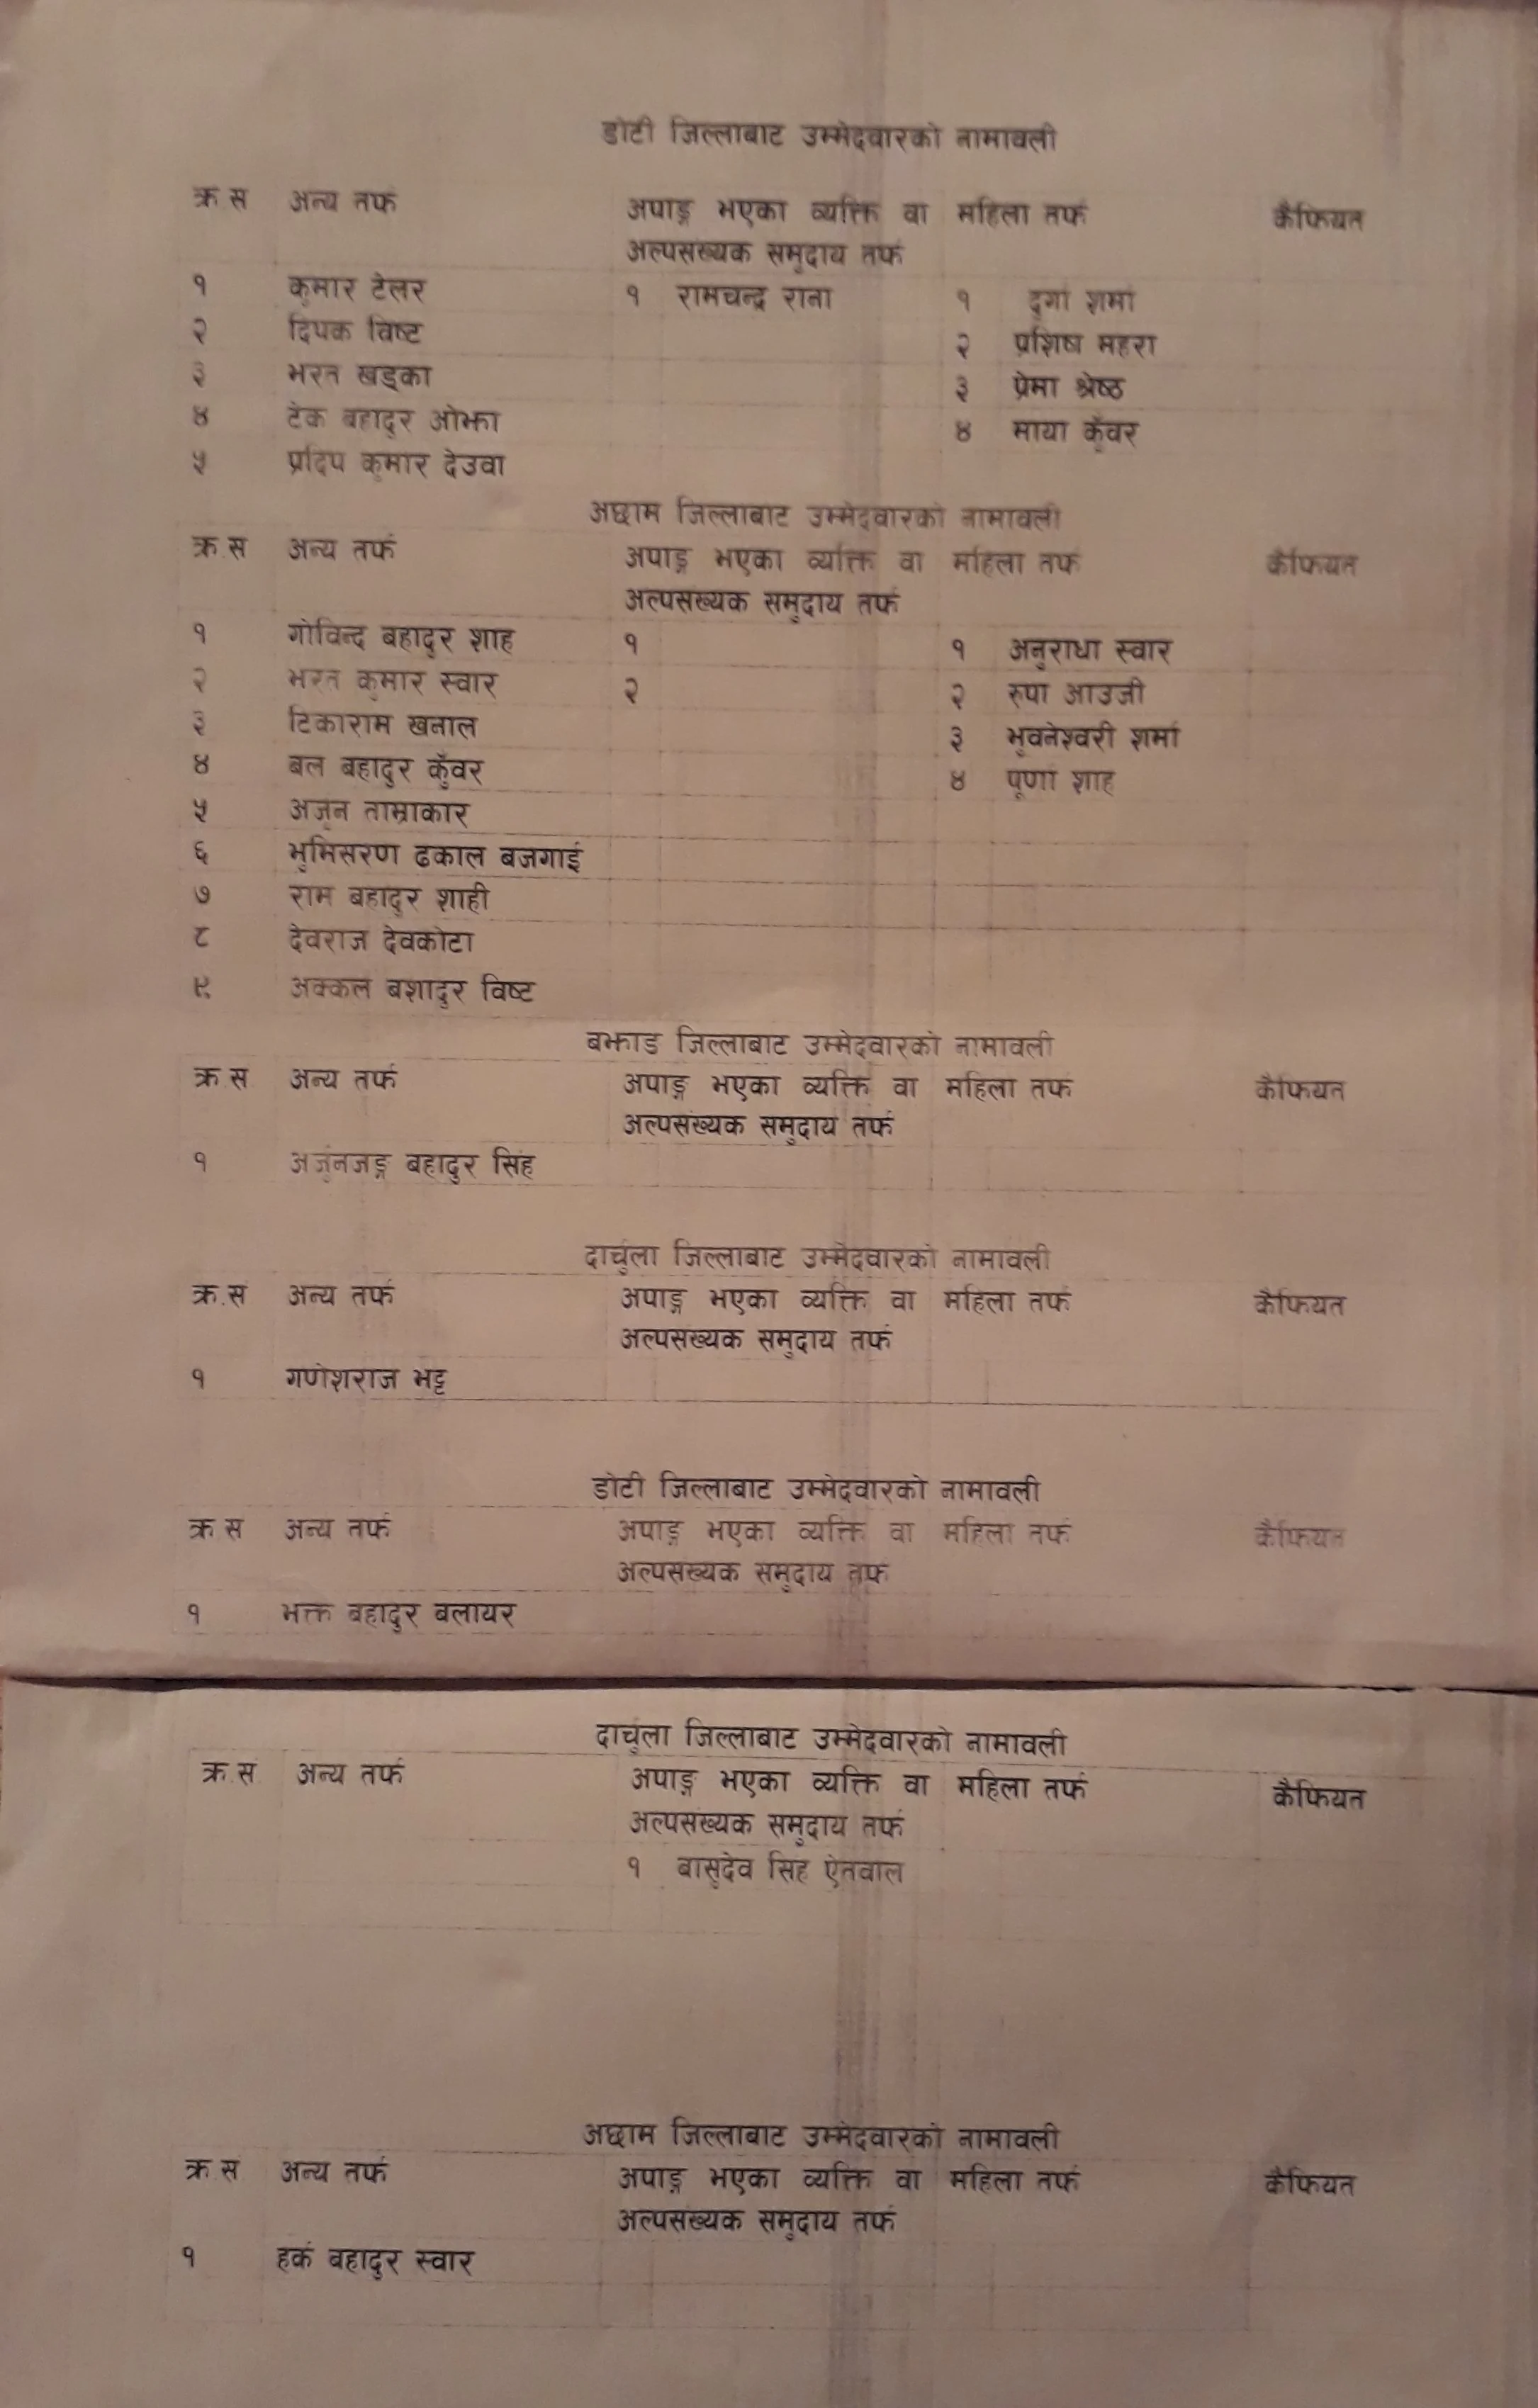 डोटी जिल्लाबाट उम्मेदवारको नामावली
क्र स अन्य तर्फ अपाङ्ग भएका व्यक्ति वा महिला तर्फ कैफियत
अल्पसंख्यक समुदाय तर्फ
१ कुमार टेलर १ रामचन्द्र राना १ दुर्गा शर्मा
२ दिपक विष्ट २ प्रशिक्षा महरा
३ भरत खड्का ३ प्रेमा श्रेष्ठ
४ टेक बहादुर ओझा ४ माया कुँवर
५ प्रदिप कुमार देउवा
अछाम जिल्लाबाट उम्मेदवारको नामावली
क्र.स अन्य तर्फ अपाङ्ग भएका व्यक्ति वा महिला तर्फ कैफियत
अल्पसंख्यक समुदाय तर्फ
१ गोविन्द बहादुर शाह १ १ अनुराधा स्वार
२ भरत कुमार स्वार २ २ रुपा आउजी
३ टिकाराम खनाल ३ भुवनेश्वरी शर्मा
४ बल बहादुर कुँवर ४ पूर्णा शाह
५ अर्जुन ताम्राकार
६ भुमिसरण ढकाल बजगाई
७ राम बहादुर शाही
८ देवराज देवकोटा
९ अक्कल बशादुर विष्ट
बझाङ जिल्लाबाट उम्मेदवारको नामावली
क्र.स. अन्य तर्फ अपाङ्ग भएका व्यक्ति वा महिला तर्फ कैफियत
अल्पसंख्यक समुदाय तर्फ
१ अर्जुनजङ्ग बहादुर सिंह
दार्चुला जिल्लाबाट उम्मेदवारको नामावली
क्र.स अन्य तर्फ अपाङ्ग भएका व्यक्ति वा महिला तर्फ कैफियत
अल्पसंख्यक समुदाय तर्फ
१ गणेशराज भट्ट
डोटी जिल्लाबाट उम्मेदवारको नामावली
क्र स अन्य तर्फ अपाङ्ग भएका व्यक्ति वा महिला तर्फ कैफियत
अल्पसंख्यक समुदाय तर्फ
१ भक्त बहादुर बलायर
दार्चुला जिल्लाबाट उम्मेदवारको नामावली
क्र.स. अन्य तर्फ अपाङ्ग भएका व्यक्ति वा महिला तर्फ कैफियत
अल्पसंख्यक समुदाय तर्फ
१ बासुदेव सिंह ऐतवाल
अछाम जिल्लाबाट उम्मेदवारको नामावली
क्र.स अन्य तर्फ अपाङ्ग भएका व्यक्ति वा महिला तर्फ कैफियत
अल्पसंख्यक समुदाय तर्फ
१ हर्क बहादुर स्वार